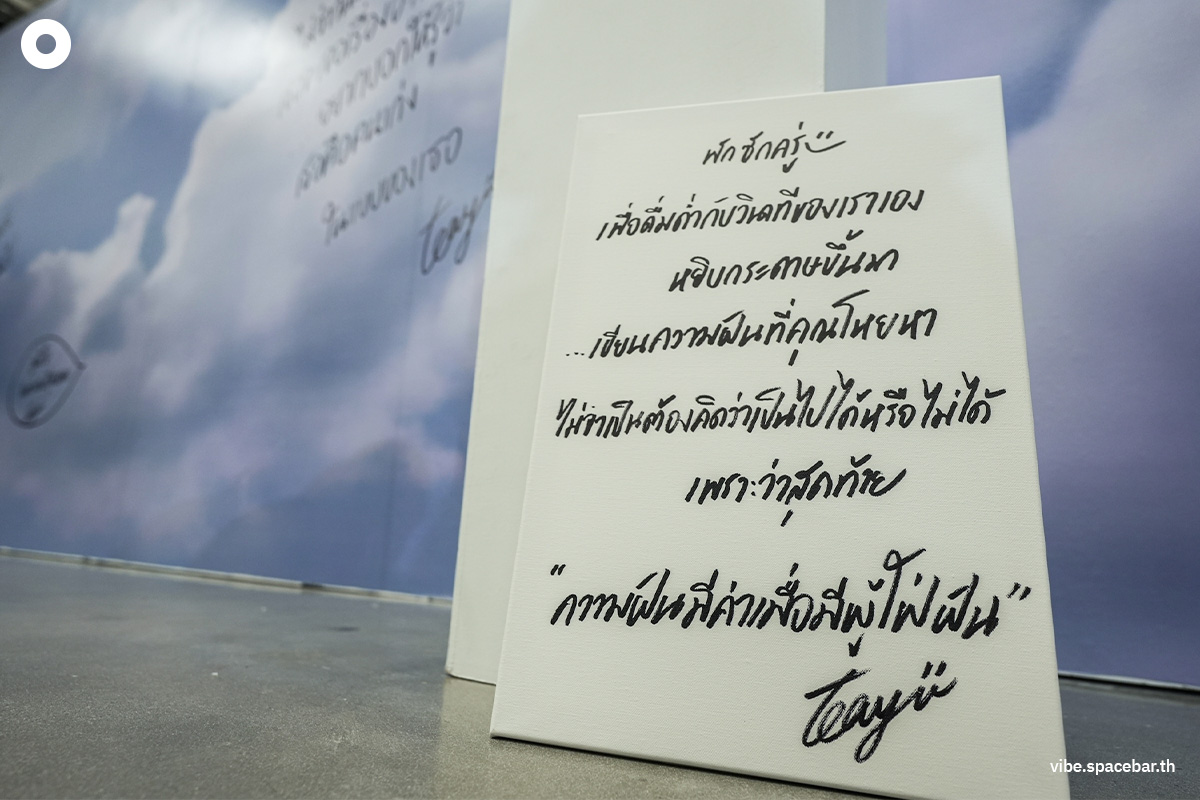 อยากบอกให้รู้ว่า
เธอคือคนเก่ง
ในแบบของเธอ
teayii
พักซักครู่
เพื่อดื่มด่ำกับวินาทีของเราเอง
หยิบกระดาษขึ้นมา
...เขียนความฝันที่คุณโหยหา
ไม่จำเป็นต้องคิดว่าเป็นไปได้หรือไม่ได้
เพราะว่าสุดท้าย
"ความฝันมีค่าเมื่อมีผู้ใฝ่ฝัน"
teayii
vibe.spacebar.th